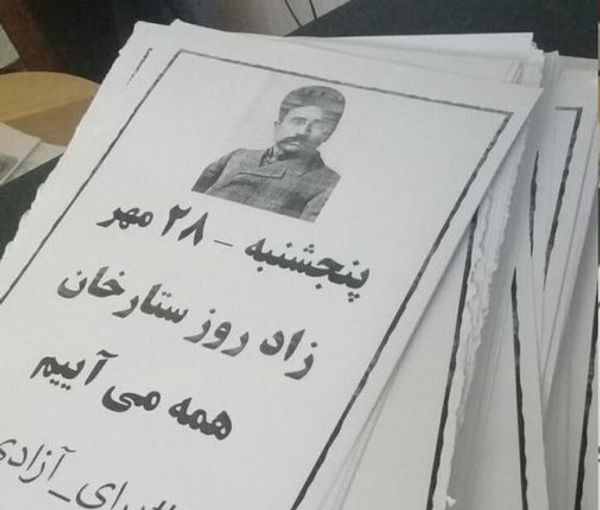 پنجشنبه - ۲۸ مهر
زاد روز ستارخان
همه می آییم
برای_آزادی